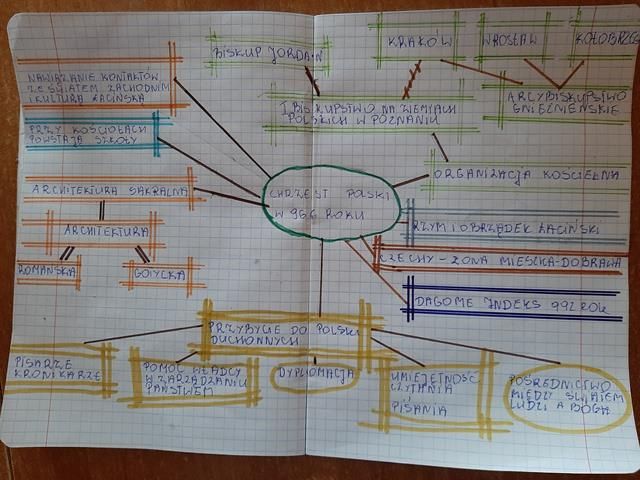 BISKUP JORDAN
KRAKÓW
WROSŁAW
KOŁOBRZEG
NAWIĄZANIE KONTAKTÓW
ZE ŚWIATEM ZACHODNIM
I KULTURĄ ŁACIŃSKĄ
I BISKUPSTWO NA ZIEMIACH
POLSKICH W POZNANIU
ARCYBISKUPSTWO
GNIEŹNIEŃSKIE
PRZY KOŚCIOŁACH
POWSTAJĄ SZKOŁY
ORGANIZACJA KOŚCIELNA
ARCHITEKTURA SAKRALNA
CHRZEST POLSKI
W 966 ROKU
ARCHITEKTURA
RZYM I OBRZĄDEK ŁACIŃSKI
ROMAŃSKA
GOTYCKA
CZECHY - ŻONA MIESZKA-DOBRAWA
DAGOME INDEKS 992 ROK
PRZYBYCIE DO POLSKI
DUCHOWNYCH
PISARZE
KRONIKARZE
POMOC WŁADCY
W ZARZĄDZANIU
PAŃSTWEM
DYPLOMACJA
UMIEJĘTNOŚĆ
CZYTANIA
I
PISANIA
POŚREDNICTWO
MIĘDZY ŚWIATEM
LUDZI A BOGA